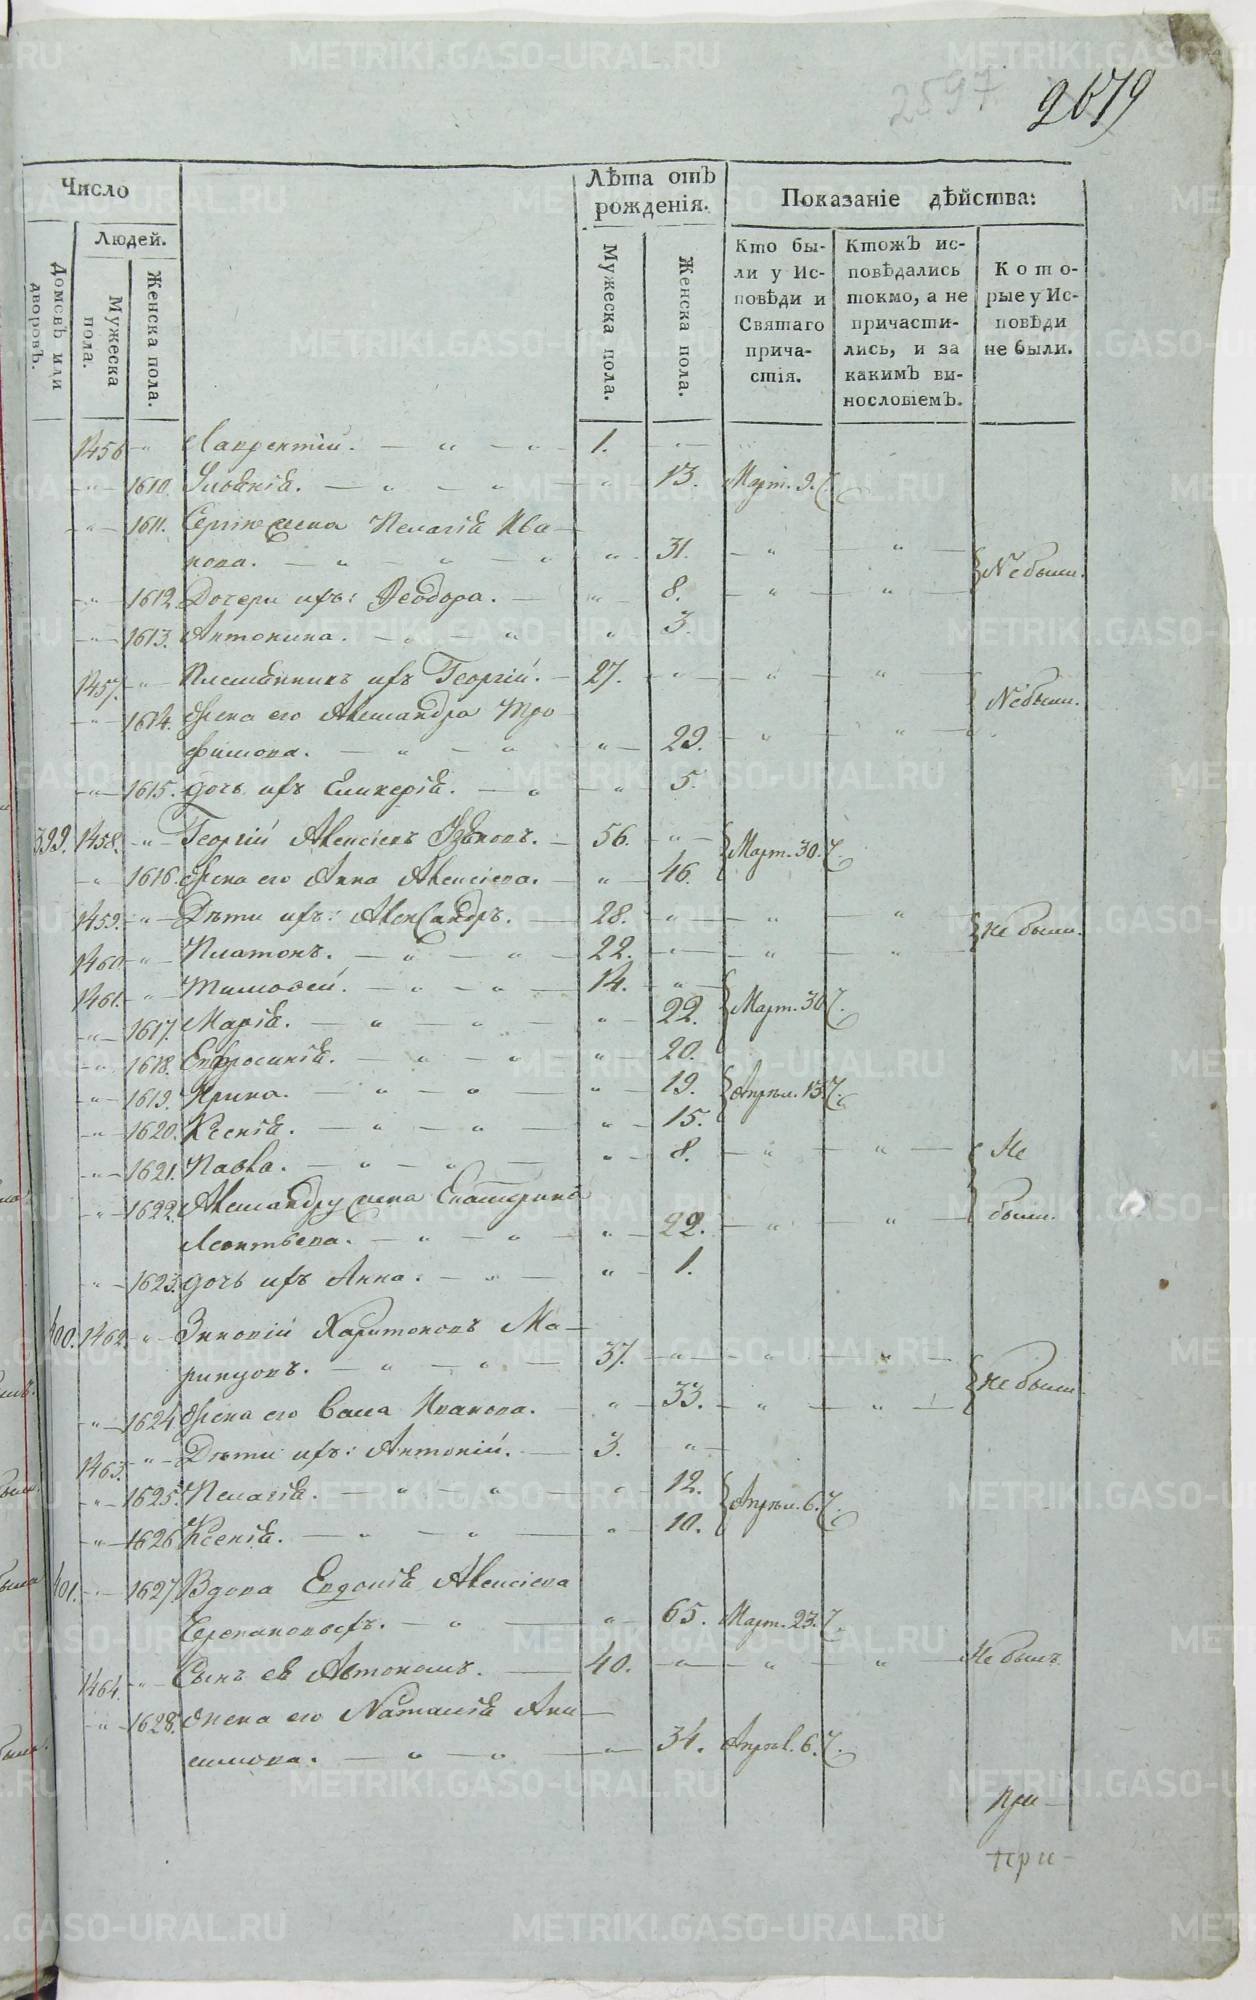 2597
2619
Число
Людей.
Домовъ или дворовъ.
Мужеска пола.
Женска пола.
Лѣта отъ рожденія.
Мужеска пола.
Женска пола.
Показаніе дѣйства:
Кто бы-
ли у Ис-
повѣди и
Святаго
прича-
стія.
Ктожъ ис-
повѣдались
токмо, а не
причасти-
лись, и за
какимъ ви-
нословіемъ.
Кото-
рые у Ис-
повѣди
не были.
1456 Лаврентій. 1.
1610. 13. Март. 9.
1611. Сергія жена Пелагія Ива-
нова. 31.
Не были.
1612. Дочери ихъ: Ѳеодора. 8.
1613. Антонина. 3.
1457. Племянникъ ихъ Георгій. 27.
Не были.
1614. Жена его Александра Тро-
фимова. 29.
1615. дочь ихъ Гликерія. 5.
399. 1458. Георгій Алексіевъ 56. Март. 30.
1616. Жена его Анна Алексіева. 46.
1459. Дѣти ихъ: Александръ. 28. не были.
1460 Платонъ. 22.
1461. Тимоѳей. 14. Март. 30
1617. Марія. 22.
1618. Евфросинія. 20.
1619. Ирина. 19. Апрѣл. 13
1620. Ксенія. 15.
1621. Павла. 8. Не
1622. Александру жена Екатерина были.
Леонтьева. 22.
1623. дочь ихъ Анна. 1.
400. 1462. Зиновій Харитоновъ Ма-
37. не были
1624 Жена его Васса Иванова. 33.
1463. Дѣти ихъ: Антоній. 3.
1625. Пелагія. 12. Апрѣл. 6.
1626 Ксенія. 10.
401. 1627. Вдова Евдокія Алексіева
65. Март. 23.
1464. Сынъ ея Автономъ. 40. Не былъ
1628. Жена его Наталія Ани-
симова. 34. Апрѣл. 6.
При-
при-
METRIKI.GASO-URAL.RU